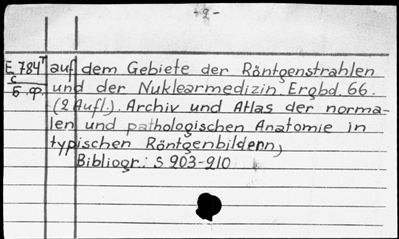 -2-
E 784т auf dem Gebiete der Röntgenstrahlen
с und der Nuklearmedizin. Ergbd. 66.
б.ф. (2 Aufl.). Archiv und Atlas der norma-
len und pathologischen Anatomie in
typischen Röntgenbildern,
Bibliogr.: S 903-910